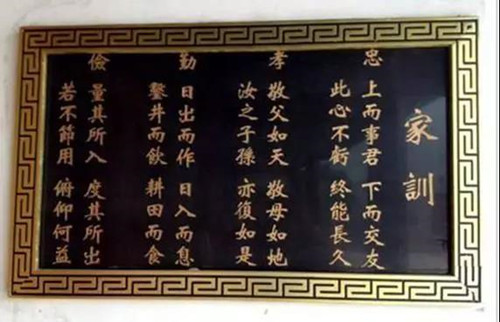 家訓
忠 上而事君 下而交友
此心不虧 終能長久
孝 敬父如天 敬母如地
汝之子孫 亦復如是
勤 日出而作 日入而息
鑿井而飲 耕田而食
儉 量其所入 度其所出
若不節用 俯仰何益